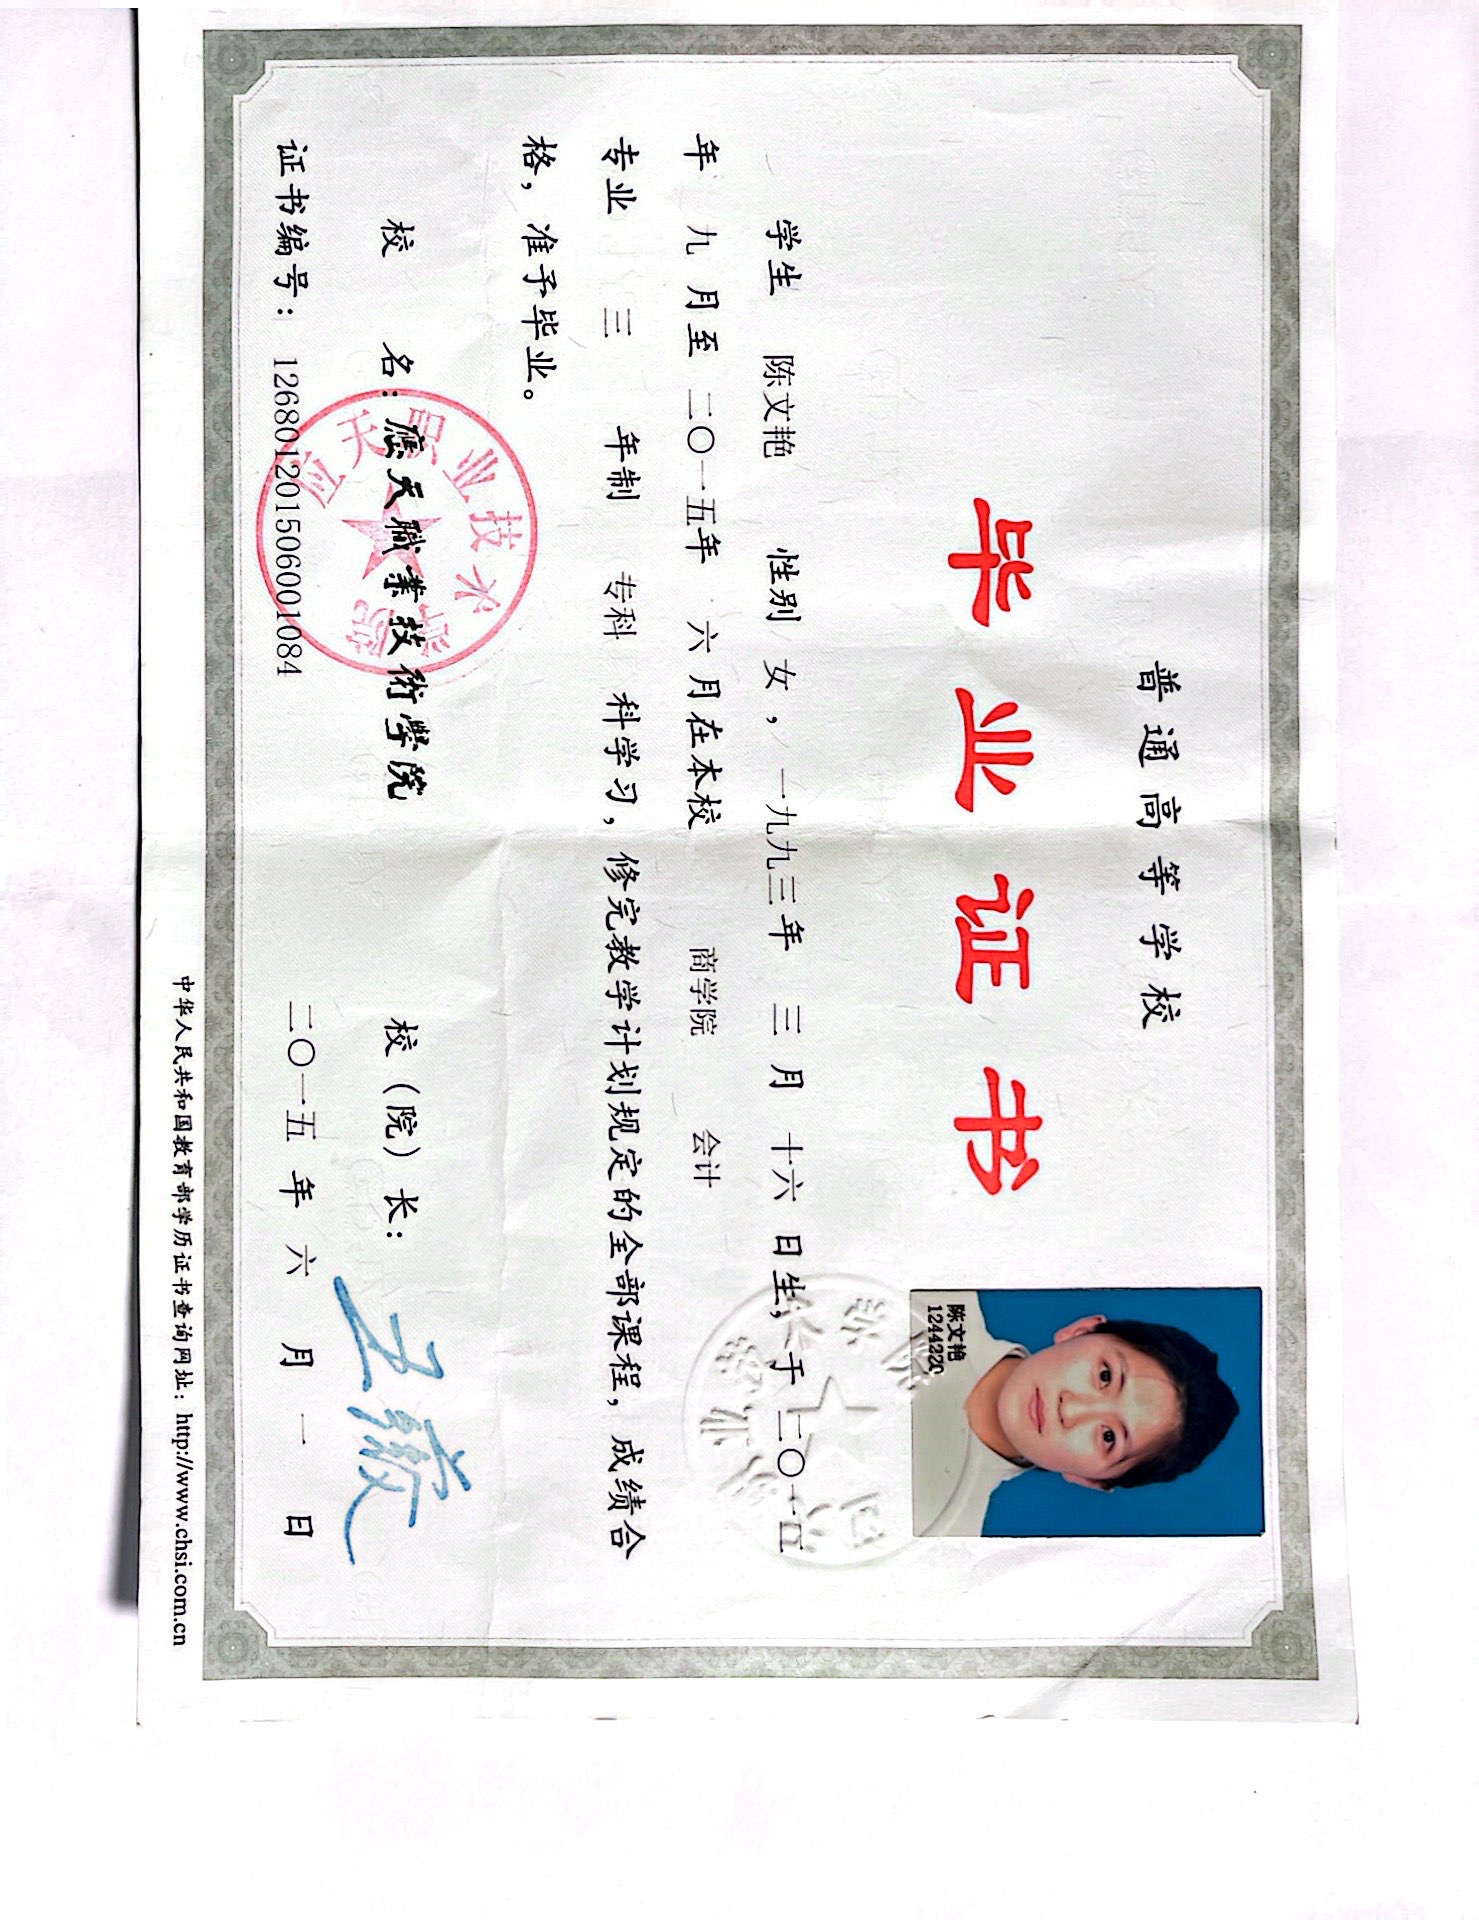 普通高等学校
毕业证书
陈文艳
1244320
学生 陈文艳 性别 女，一九九三年 三 月 十六 日生，于 二〇一五
年 九 月至 二〇一五年 六 月在本校 商学院 会计
专业 三 年制 专科 科学习，修完教学计划规定的全部课程，成绩合
格，准予毕业。
校 名：應天職業技術學院 校（院）长：
应天职业技术学院
证书编号：126801201506001084 二〇一五 年 六 月 一 日
中华人民共和国教育部学历证书查询网址：http://www.chsi.com.cn